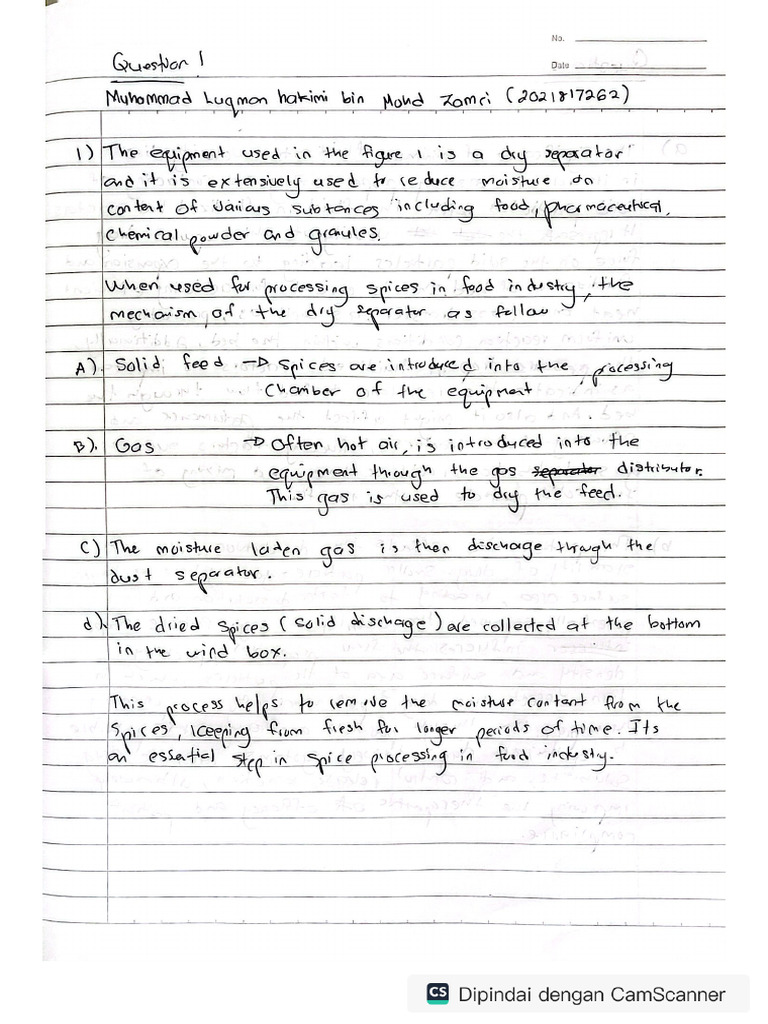 No.
Question 1
Date
Muhammad Luqman hakimi bin Mohd Zamri (2021817262)
1) The equipment used in the figure 1 is a dry separator
and it is extensively used to reduce moisture on
content of various subtances including food, pharmaceutical,
chemical powder and granules.
When used for processing spices in food industry, the
mechanism of the dry separator as follow
A). Solid feed. → Spices are introduced into the processing
Chamber of the equipment
B). Gas → Often hot air, is introduced into the
equipment through the gas separator distributor.
This gas is used to dry the feed.
C) The moisture laden gas is then discharge through the
dust separator.
d). The dried spices (solid discharge) are collected at the bottom
in the wind box.
This process helps to remove the moisture content from the
Spices, keeping from fresh for longer periods of time. Its
an essential step in spice processing in food industry.
CS Dipindai dengan CamScanner